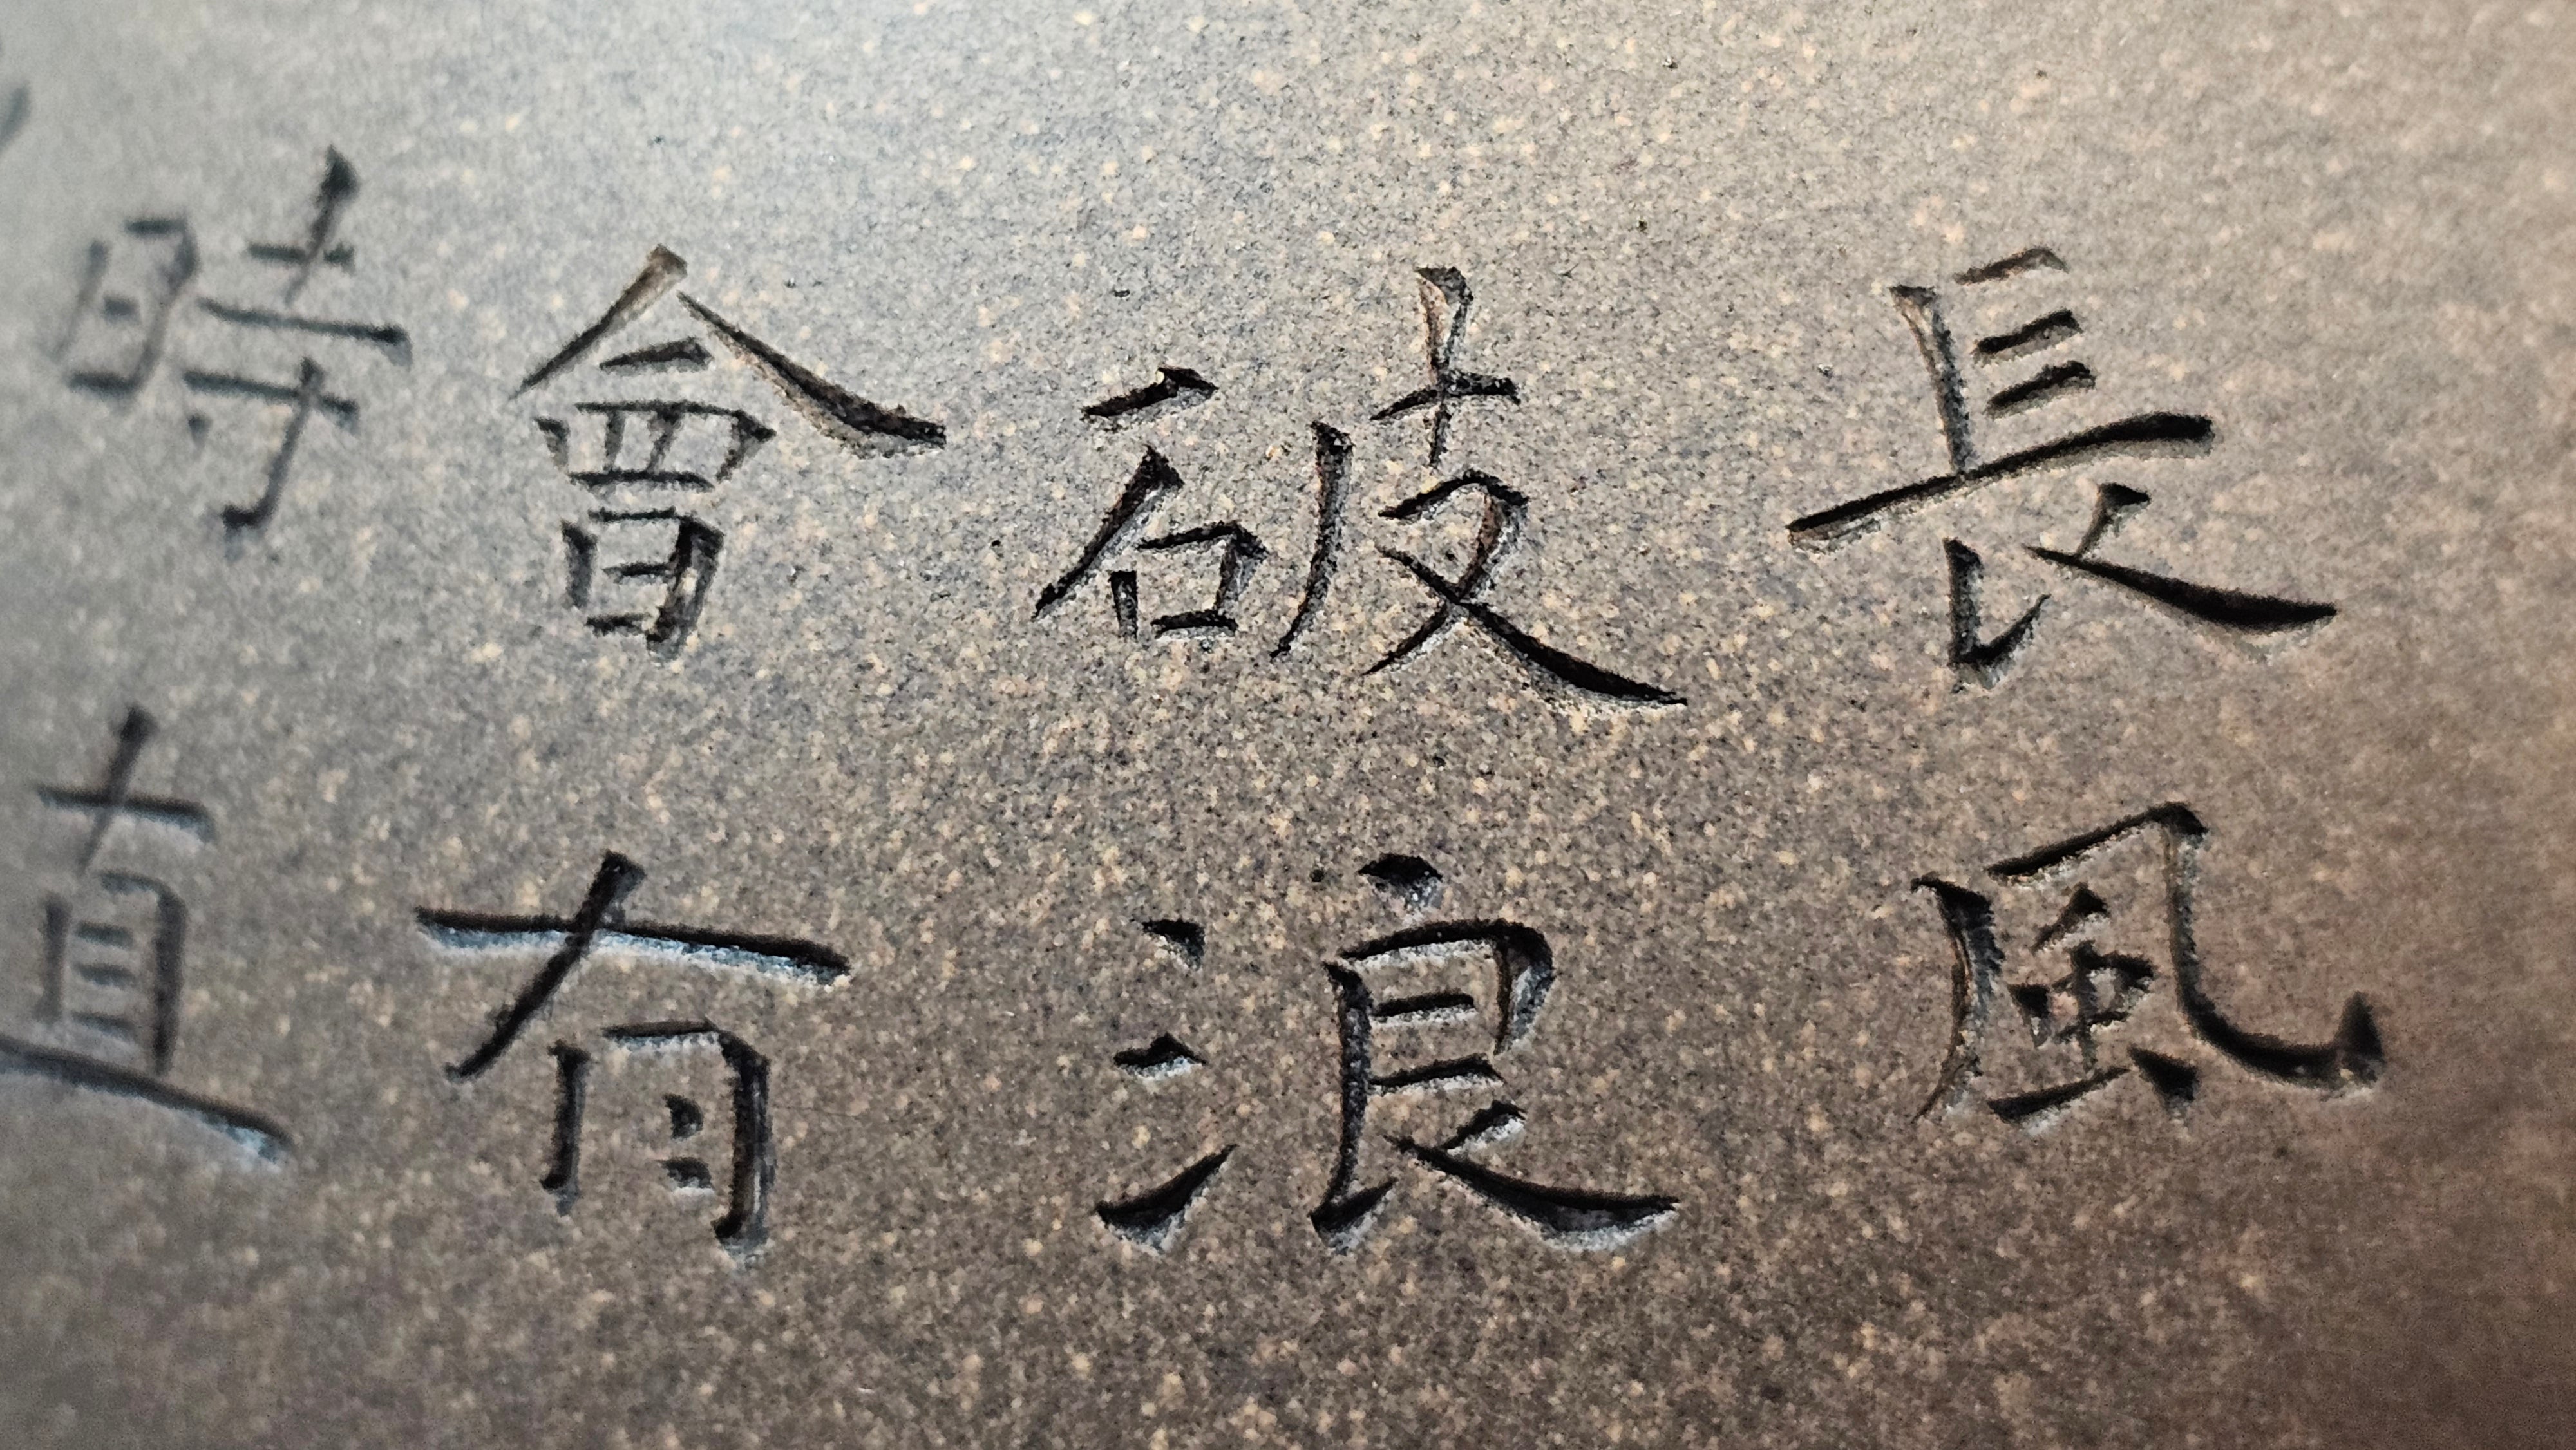 長風
破浪
會有
時直